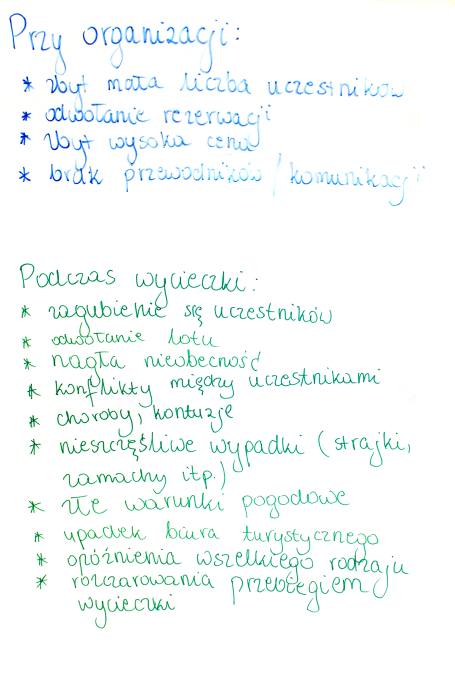 Przy organizacji:
* zbyt mała liczba uczestników
* odwołanie rezerwacji
* zbyt wysoka cena
* brak przewodników / komunikacji
Podczas wycieczki:
* zagubienie się uczestników
* odwołanie lotu
* nagła nieobecność
* konflikty między uczestnikami
* choroby, kontuzje
* nieszczęśliwe wypadki (strajki,
zamachy itp.)
* złe warunki pogodowe
* upadek biura turystycznego
* opóźnienia wszelkiego rodzaju
* rozczarowania przebiegiem
wycieczki